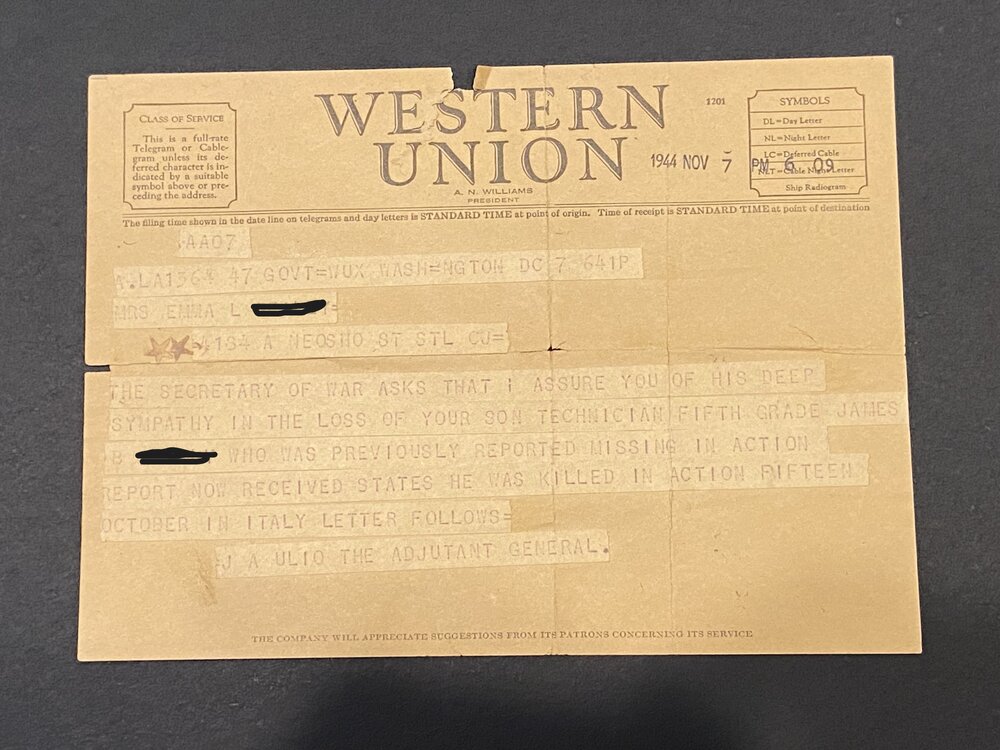 CLASS OF SERVICE
This is a full-rate
Telegram or Cable-
gram unless its de-
ferred character is in-
dicated by a suitable
symbol above or pre-
ceding the address.
WESTERN
UNION
A. N. WILLIAMS
PRESIDENT
1201
1944 NOV 7 PM 6 09
SYMBOLS
DL=Day Letter
NL=Night Letter
LC=Deferred Cable
NLT=Cable Night Letter
Ship Radiogram
The filing time shown in the date line on telegrams and day letters is STANDARD TIME at point of origin. Time of receipt is STANDARD TIME at point of destination
AA07
A.LA136 47 GOVT=WUX WASHINGTON DC 7 641P
MRS EMMA L
4134 A NEOSHO ST STL CU=
THE SECRETARY OF WAR ASKS THAT I ASSURE YOU OF HIS DEEP
SYMPATHY IN THE LOSS OF YOUR SON TECHNICIAN FIFTH GRADE JAMES
B WHO WAS PREVIOUSLY REPORTED MISSING IN ACTION
REPORT NOW RECEIVED STATES HE WAS KILLED IN ACTION FIFTEEN
OCTOBER IN ITALY LETTER FOLLOWS=
J A ULIO THE ADJUTANT GENERAL.
THE COMPANY WILL APPRECIATE SUGGESTIONS FROM ITS PATRONS CONCERNING ITS SERVICE